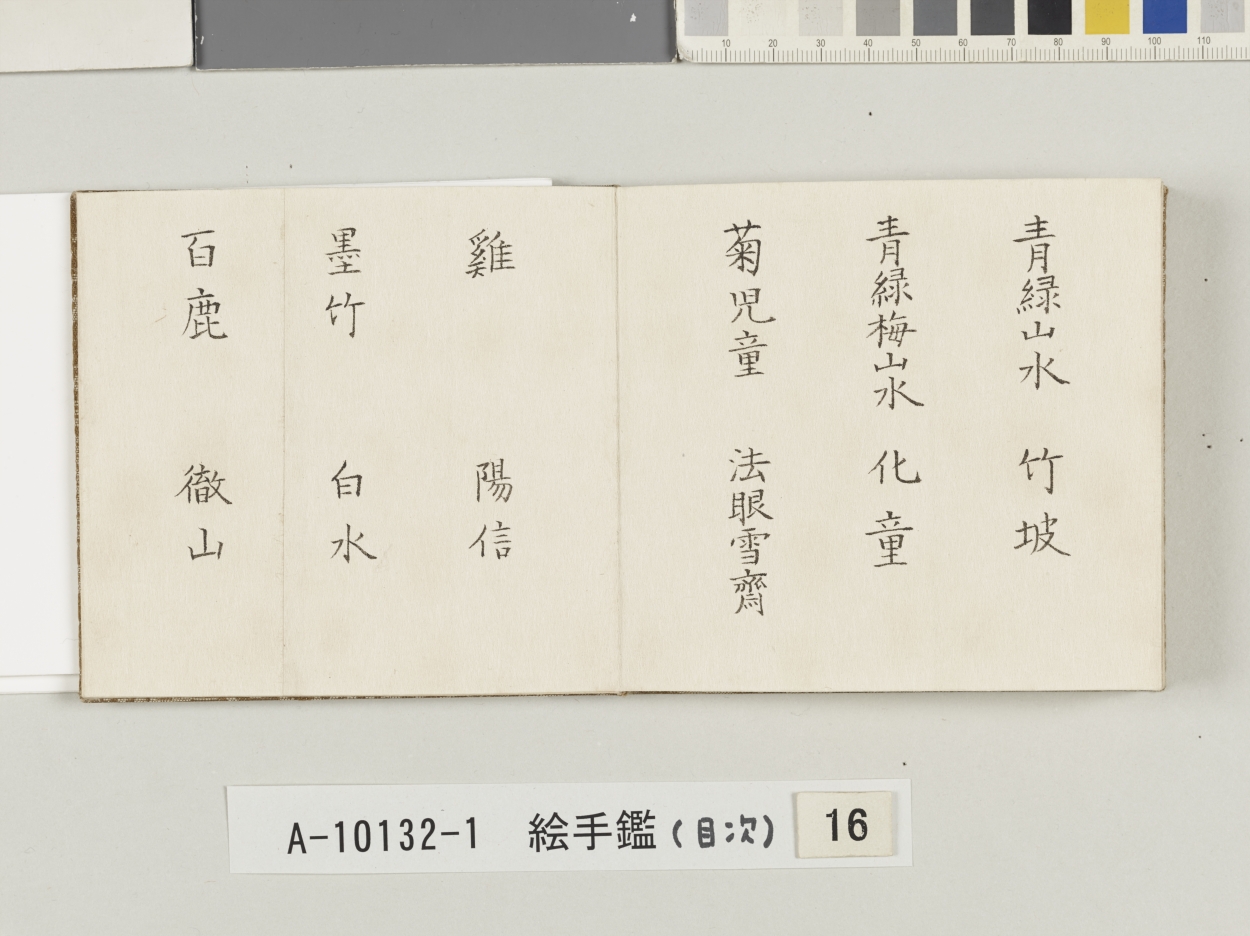 10 20 30 40 50 60 70 80 90 100 110
青緑山水 竹坡
青緑梅山水 化童
菊児童 法眼雪齋
雞 陽信
墨竹 白水
百鹿 徹山
A-10132-1 絵手鑑(目次) 16